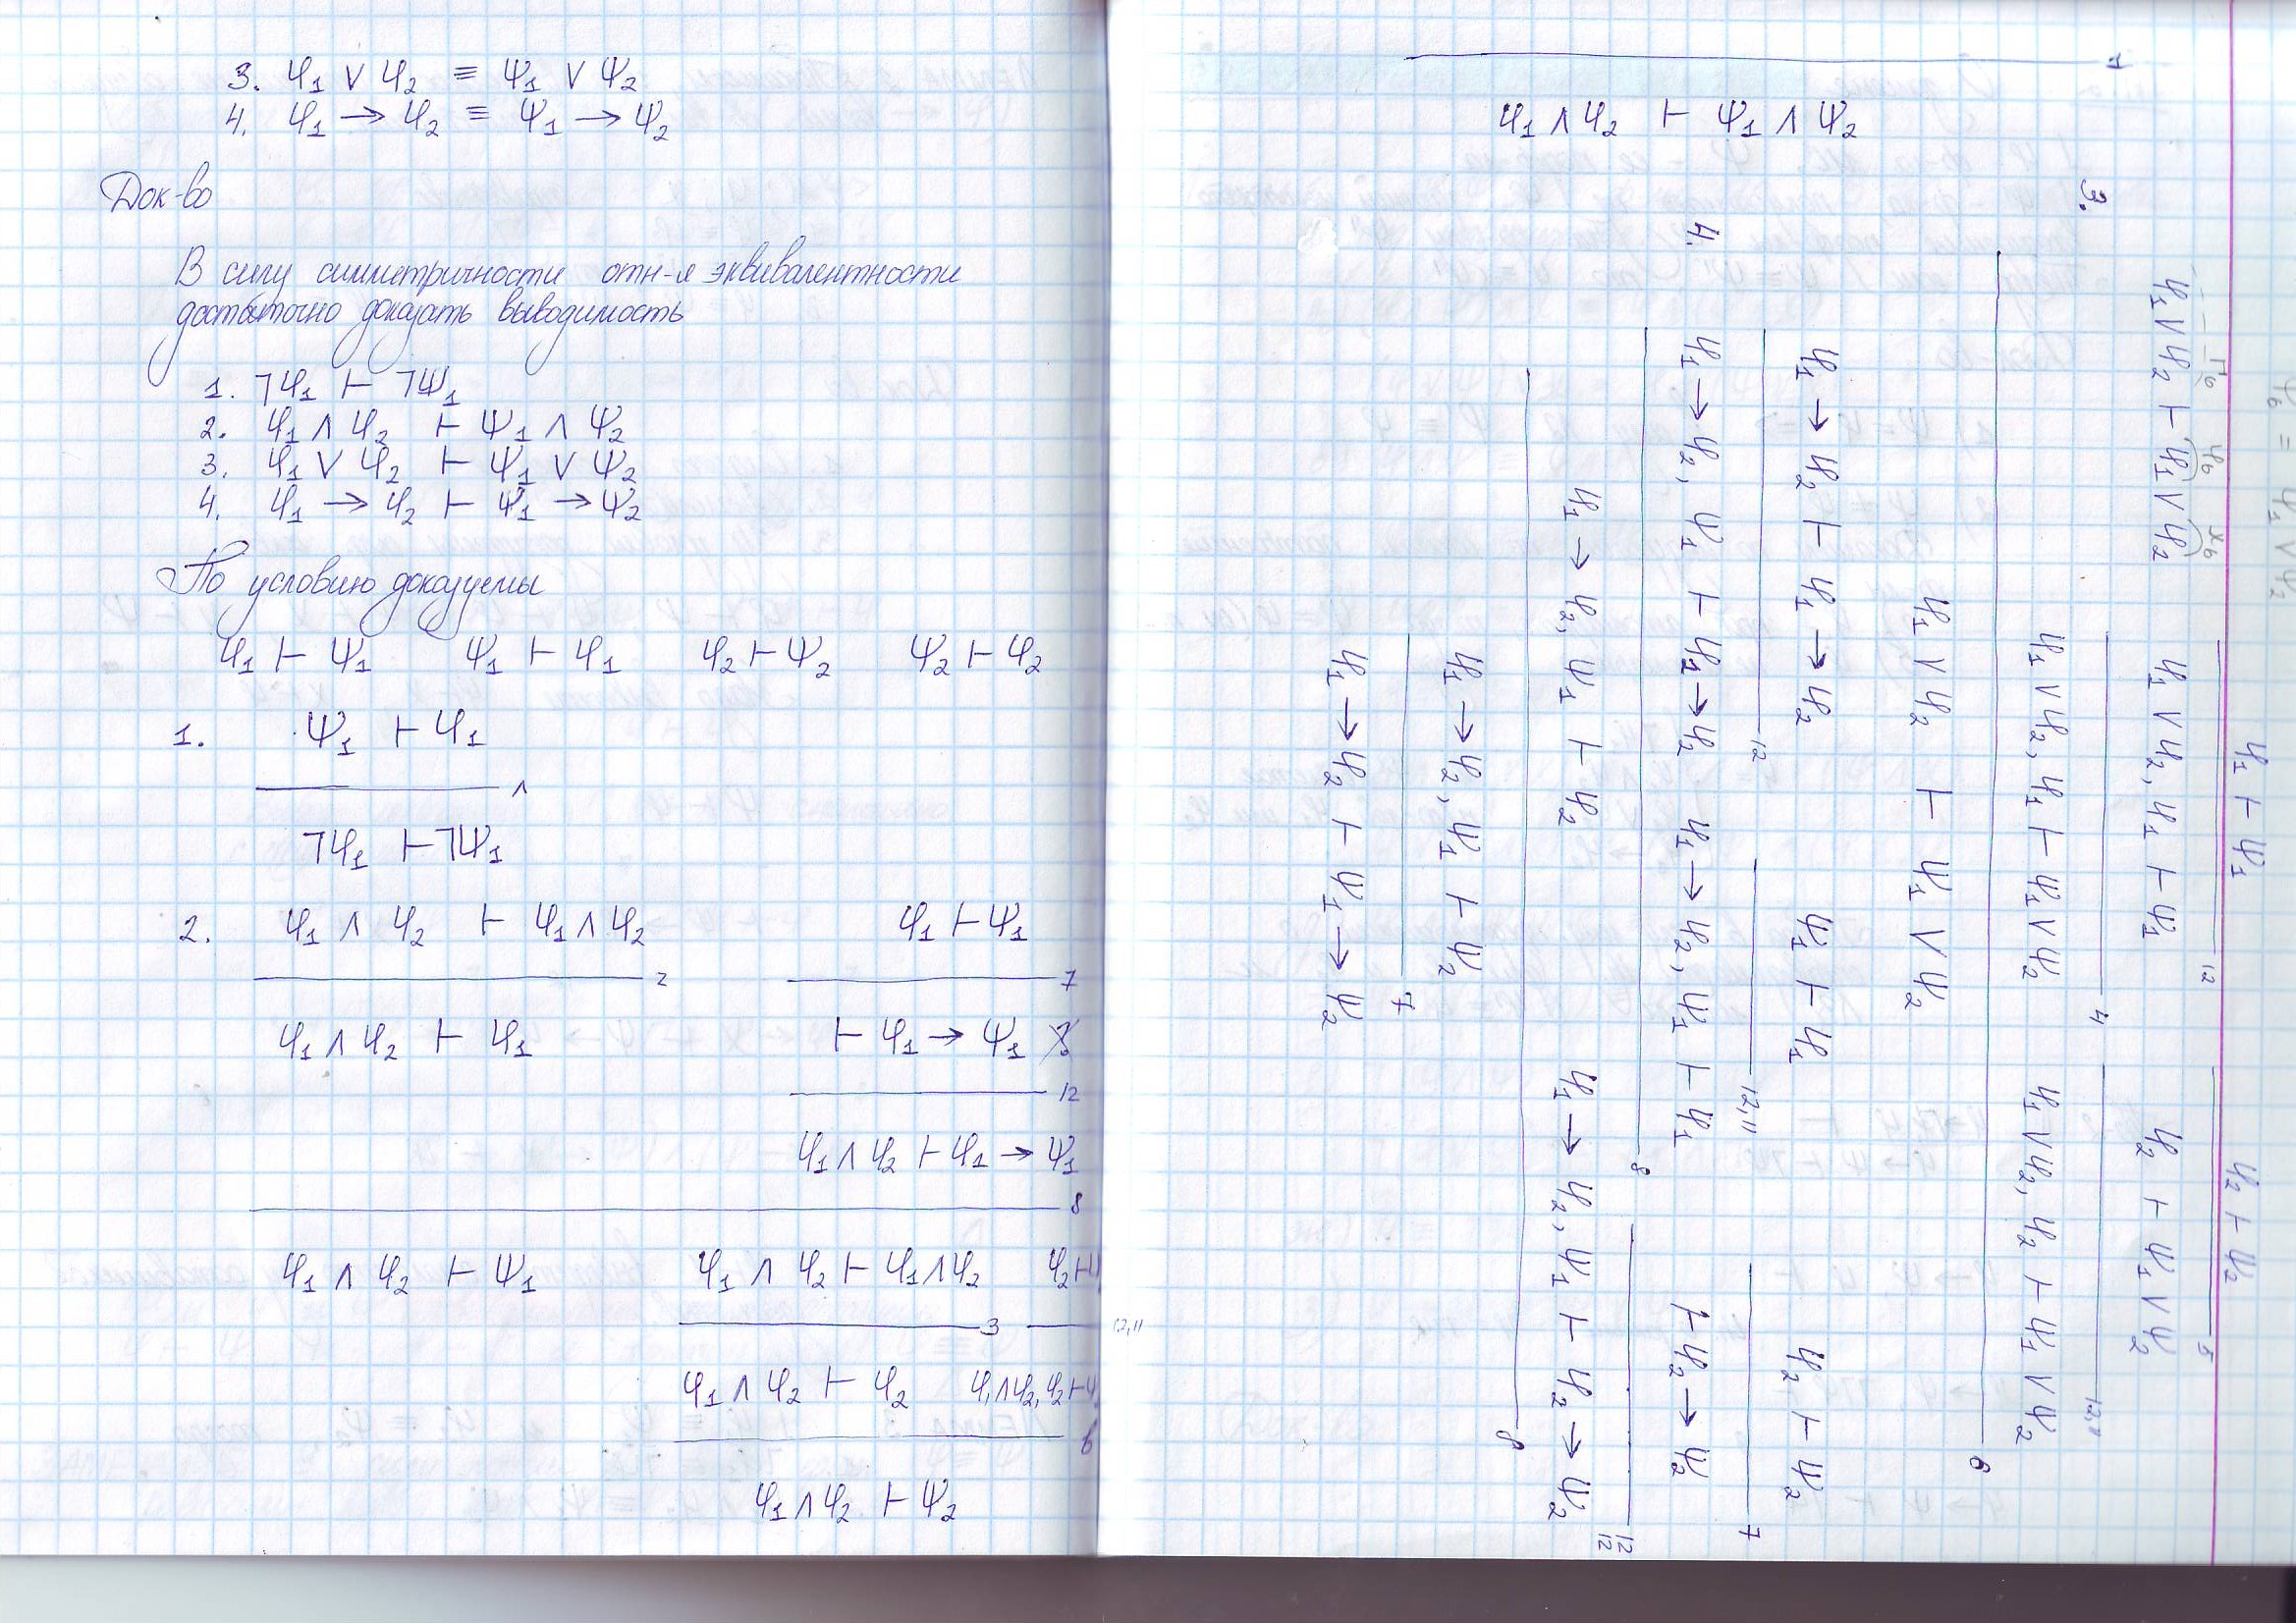 3. φ₁ ∨ φ₂ ≡ ψ₁ ∨ ψ₂
4. φ₁ → φ₂ ≡ ψ₁ → ψ₂
Док-во
В силу симметричности отн-я эквивалентности
достаточно доказать выводимость
1. ¬φ₁ ⊢ ¬ψ₁
2. φ₁ ∧ φ₂ ⊢ ψ₁ ∧ ψ₂
3. φ₁ ∨ φ₂ ⊢ ψ₁ ∨ ψ₂
4. φ₁ → φ₂ ⊢ ψ₁ → ψ₂
По условию доказуемы
φ₁ ⊢ ψ₁ ψ₁ ⊢ φ₁ φ₂ ⊢ ψ₂ ψ₂ ⊢ φ₂
1. ψ₁ ⊢ φ₁
¬φ₁ ⊢ ¬ψ₁
2. φ₁ ∧ φ₂ ⊢ φ₁ ∧ φ₂ φ₁ ⊢ ψ₁
2 7
φ₁ ∧ φ₂ ⊢ φ₁ ⊢ φ₁ → ψ₁
12
φ₁ ∧ φ₂ ⊢ φ₁ → ψ₁
8
φ₁ ∧ φ₂ ⊢ ψ₁ φ₁ ∧ φ₂ ⊢ φ₁ ∧ φ₂ φ₂ ⊢
3 12,11
φ₁ ∧ φ₂ ⊢ φ₂ φ₁ ∧ φ₂, φ₂ ⊢
φ₁ ∧ φ₂ ⊢ ψ₂
1
φ₁ ∧ φ₂ ⊢ ψ₁ ∧ ψ₂
3.
φ₁ ⊢ ψ₁ φ₂ ⊢ ψ₂
12 5
φ₁ ∨ φ₂ ⊢ φ₁ ∨ φ₂ φ₁ ∨ φ₂, φ₁ ⊢ ψ₁ φ₂ ⊢ ψ₁ ∨ ψ₂
4 12,11
φ₁ ∨ φ₂, φ₁ ⊢ ψ₁ ∨ ψ₂ φ₁ ∨ φ₂, φ₂ ⊢ ψ₁ ∨ ψ₂
6
φ₁ ∨ φ₂ ⊢ ψ₁ ∨ ψ₂
4.
φ₁ → φ₂ ⊢ φ₁ → φ₂ ψ₁ ⊢ φ₁ φ₂ ⊢ ψ₂
12 12,11 7
φ₁ → φ₂, ψ₁ ⊢ φ₁ → φ₂ φ₁ → φ₂, ψ₁ ⊢ φ₁ ⊢ φ₂ → ψ₂
8 12 12
φ₁ → φ₂, ψ₁ ⊢ φ₂ φ₁ → φ₂, ψ₁ ⊢ φ₂ → ψ₂
8
φ₁ → φ₂, ψ₁ ⊢ ψ₂
7
φ₁ → φ₂ ⊢ ψ₁ → ψ₂